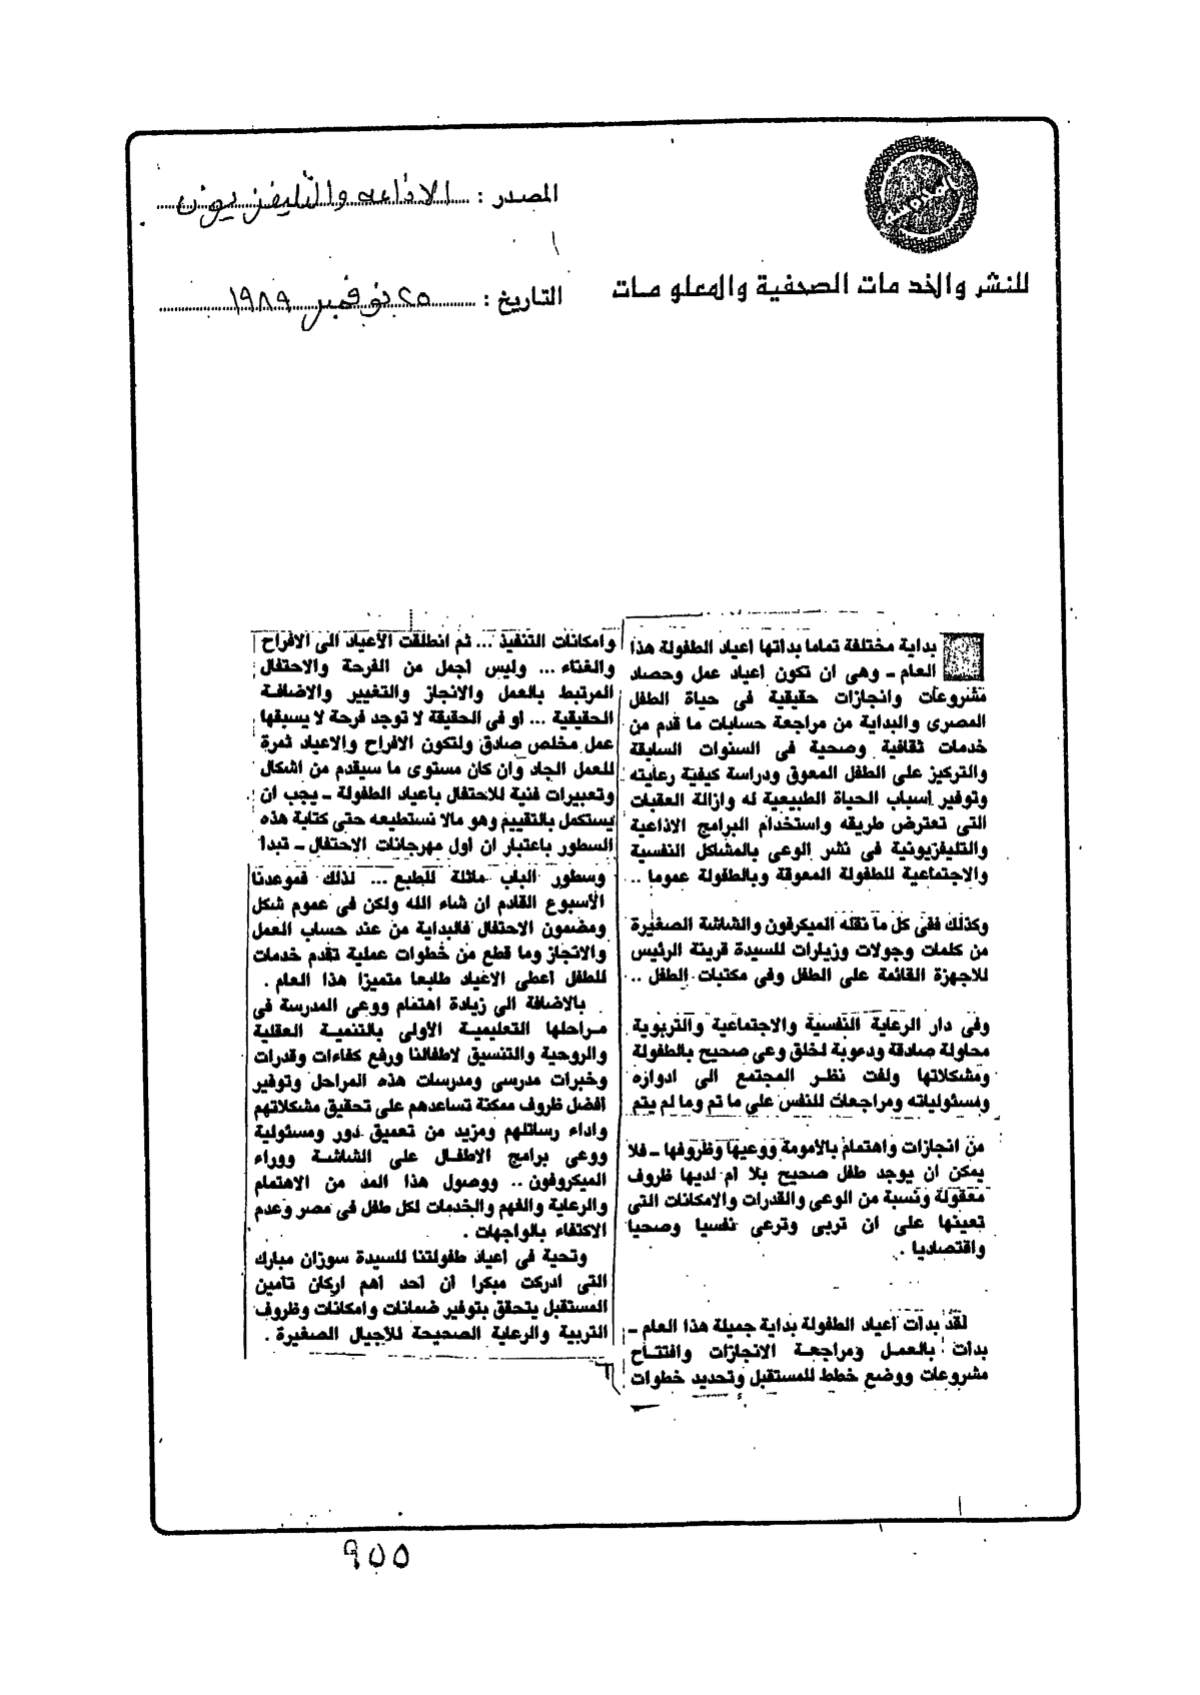 المصدر : الاذاعه والتليفزيون
للنشر والخدمات الصحفية والمعلومات
التاريخ : ٢٥ نوفمبر ١٩٨٩
بداية مختلفة تماما بدأتها أعياد الطفولة هذا
العام ـ وهى ان تكون أعياد عمل وحصاد
مشروعات وانجازات حقيقية فى حياة الطفل
المصرى والبداية من مراجعة حسابات ما قدم من
خدمات ثقافية وصحية فى السنوات السابقة
والتركيز على الطفل المعوق ودراسة كيفية رعايته
وتوفير أسباب الحياة الطبيعية له وازالة العقبات
التى تعترض طريقه واستخدام البرامج الاذاعية
والتليفزيونية فى نشر الوعى بالمشاكل النفسية
والاجتماعية للطفولة المعوقة وبالطفولة عموما ..
وكذلك ففى كل ما نقله الميكرفون والشاشة الصغيرة
من كلمات وجولات وزيارات للسيدة قرينة الرئيس
للاجهزة القائمة على الطفل وفى مكتبات الطفل ..
وفى دار الرعاية النفسية والاجتماعية والتربوية
محاولة صادقة ودعوبة لخلق وعى صحيح بالطفولة
ومشكلاتها ولفت نظر المجتمع الى ادواره
ومسئولياته ومراجعات للنفس على ما تم وما لم يتم
من انجازات واهتمام بالأمومة ووعيها وظروفها ـ فلا
يمكن ان يوجد طفل صحيح بلا ام لديها ظروف
معقولة ونسبة من الوعى والقدرات والامكانات التى
تعينها على ان تربى وترعى نفسيا وصحيا
واقتصاديا .
لقد بدأت أعياد الطفولة بداية جميلة هذا العام ـ
بدأت بالعمل ومراجعة الانجازات وافتتاح
مشروعات ووضع خطط للمستقبل وتحديد خطوات
وامكانات التنفيذ ... ثم انطلقت الأعياد الى الافراح
والغناء ... وليس اجمل من الفرحة والاحتفال
المرتبط بالعمل والانجاز والتغيير والاضافة
الحقيقية ... او فى الحقيقة لا توجد فرحة لا يسبقها
عمل مخلص صادق ولتكون الافراح والاعياد ثمرة
للعمل الجاد وان كان مستوى ما سيقدم من اشكال
وتعبيرات فنية للاحتفال بأعياد الطفولة ـ يجب ان
يستكمل بالتقييم وهو مالا نستطيعه حتى كتابة هذه
السطور باعتبار ان اول مهرجانات الاحتفال ـ تبدأ
وسطور الباب ماثلة للطبع ... لذلك فموعدنا
الأسبوع القادم ان شاء الله ولكن فى عموم شكل
ومضمون الاحتفال فالبداية من عند حساب العمل
والانجاز وما قطع من خطوات عملية تقدم خدمات
للطفل أعطى الاعياد طابعا متميزا هذا العام .
بالاضافة الى زيادة اهتمام ووعى المدرسة فى
مراحلها التعليمية الأولى بالتنمية العقلية
والروحية والتنسيق لاطفالنا ورفع كفاءات وقدرات
وخبرات مدرسى ومدرسات هذه المراحل وتوفير
أفضل ظروف ممكنة تساعدهم على تحقيق مشكلاتهم
واداء رسائلهم ومزيد من تعميق دور ومسئولية
ووعى برامج الاطفال على الشاشة ووراء
الميكروفون .. ووصول هذا المد من الاهتمام
والرعاية والفهم والخدمات لكل طفل فى مصر وعدم
الاكتفاء بالواجهات .
وتحية فى أعياد طفولتنا للسيدة سوزان مبارك
التى ادركت مبكرا ان احد اهم اركان تأمين
المستقبل يتحقق بتوفير ضمانات وامكانات وظروف
التربية والرعاية الصحيحة للأجيال الصغيرة .
٩٥٥